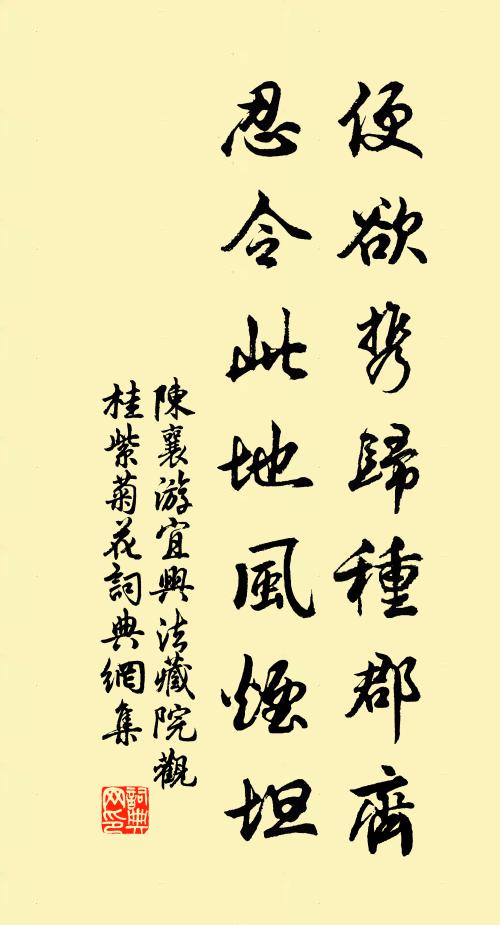 便欲携歸種郡齊
忍令此地風煙坦
陳襄游宜興法藏院觀
桂紫菊花詞典網集
詞典
网印